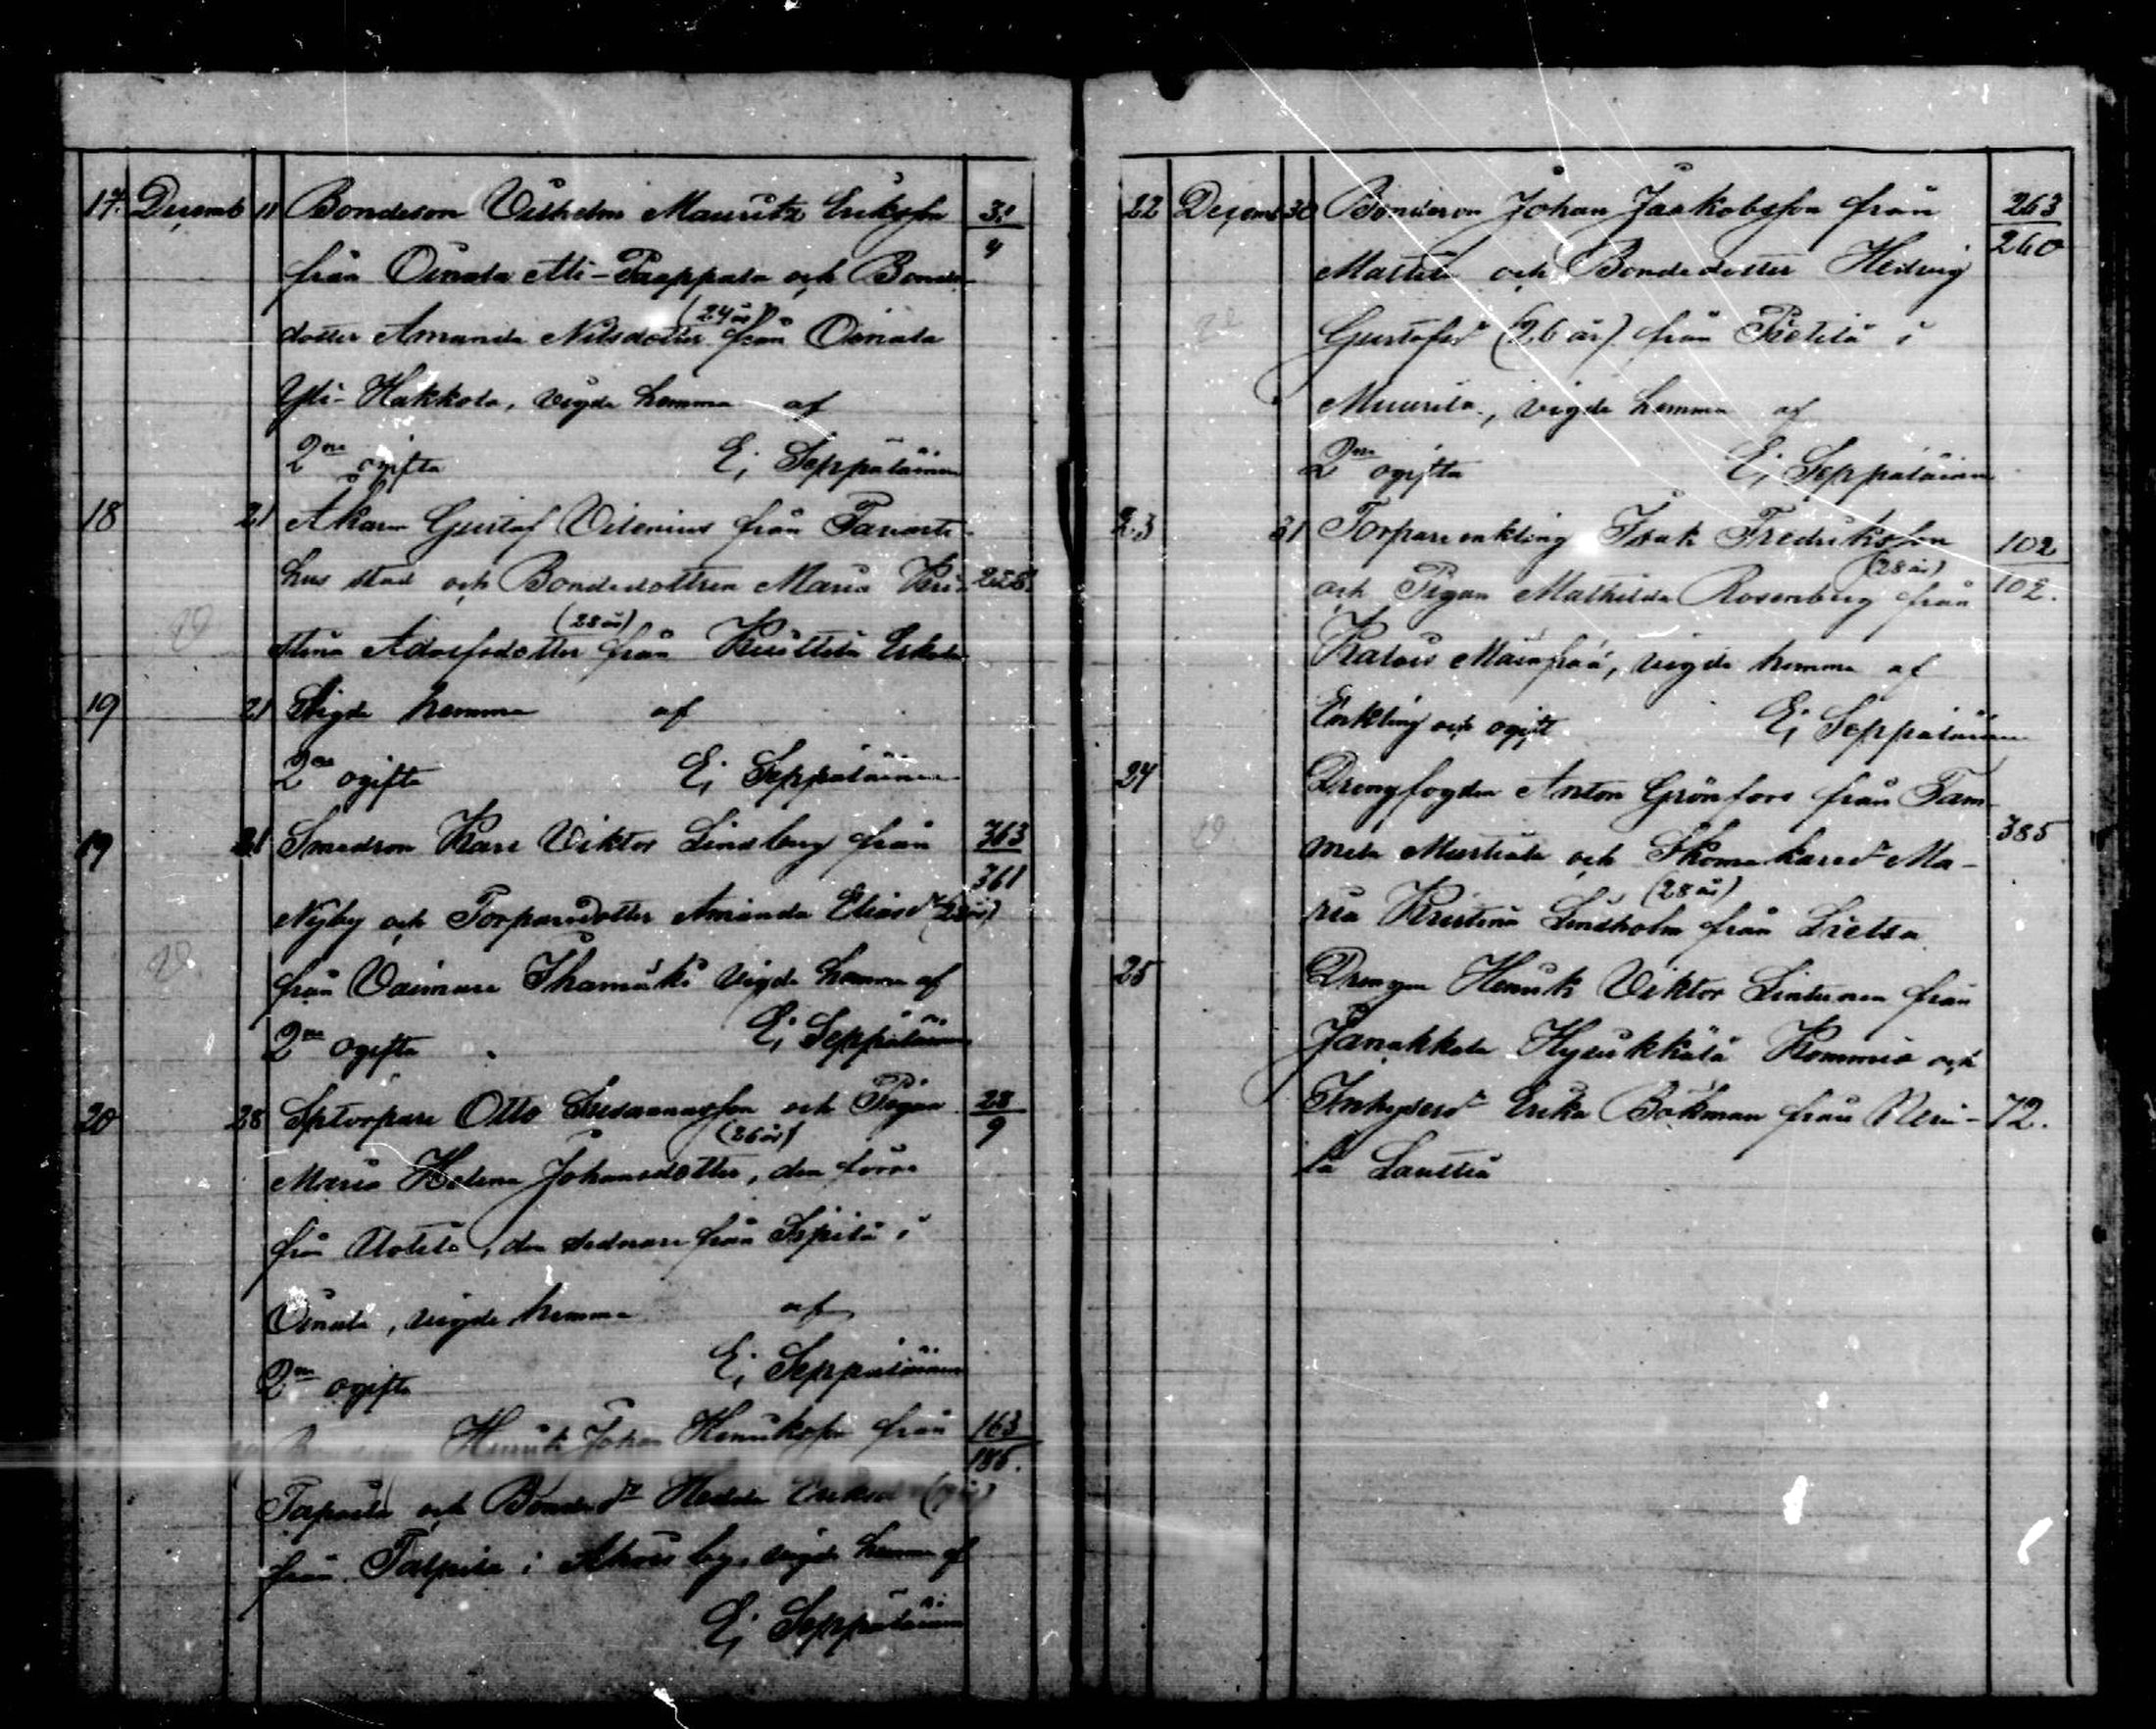 17. Decemb 11 Bondeson Vilhelm Mauritz Eriksson 31/4
från Oinala Ali-Paappala och Bonde-
dotter Amanda Nilsdotter (24 år) från Oinala
Yli-Hakkola, vigde hemma af
2ne ogifta E; Seppäläinen
18 21 Åkaren Gustaf Vilenius från Tavaste-
hus stad och Bondedottren Maria Kri-
stina Adolfsdotter (28 år) från Kuittila Erkola
19 21 Vigde hemma af
2ne ogifta E; Seppäläinen
19 21 Smedson Karl Viktor Lindberg från 363/361
Nyby och Torparedotter Amanda Eliasdr
från Vaimare Ihamäki vigde hemma af
2ne ogifta E; Seppäläinen
20 28 Sptorpare Otto och Pigan 28/9
Maria Helena Johansdotter (26 år), den förre
från Uotila, den sednare från Sipilä i
Oinala, vigde hemma af
2ne ogifta E; Seppäläinen
Henrik Johan Henriksson från 163/185.
och Bondedr Hedda
från i by, vigde hemma af
E; Seppäläinen
22 Decemb 30 Bondeson Johan Jaakobsson från 263/260
Mattila och Bondedotter Hedvig
Gustafsdr (26 år) från Pietilä i
Muurila, vigde hemma af
2ne ogifta E; Seppäläinen
23 31 Torpareenkling Isak Fredriksson 102/102.
och Pigan Mathilda Rosenberg (28 år) från
Kalois, vigde hemma af
Enkling och ogift E; Seppäläinen
24 Drengfogden Anton Grönfors från Tam-
mela Mustiala och Skomakaredr Ma- 385
ria Kristina Lindholm (28 år) från Lietsa
25 Drengen Henrik Viktor Lintunen från
Janakkala Hyvikkälä och
Inhysesdr Erika Bökman från 72.
la Lauttia